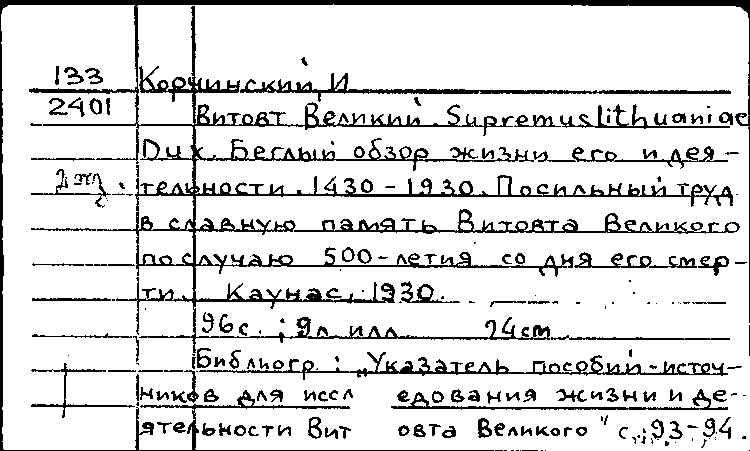 133
2401
2 экз.
Корчинский, И
Витовт Великий. Supremus lithuaniae
Dux. Беглый обзор жизни его и дея-
тельности. 1430-1930. Посильный труд
в славную память Витовта Великого
по случаю 500-летия со дня его смер-
ти. Каунас, 1930.
96с.; 9л илл 24cm
Библиогр.: „Указатель пособий-источ-
ников для иссл едования жизни и де-
ятельности Вит овта Великого" с. 93-94.